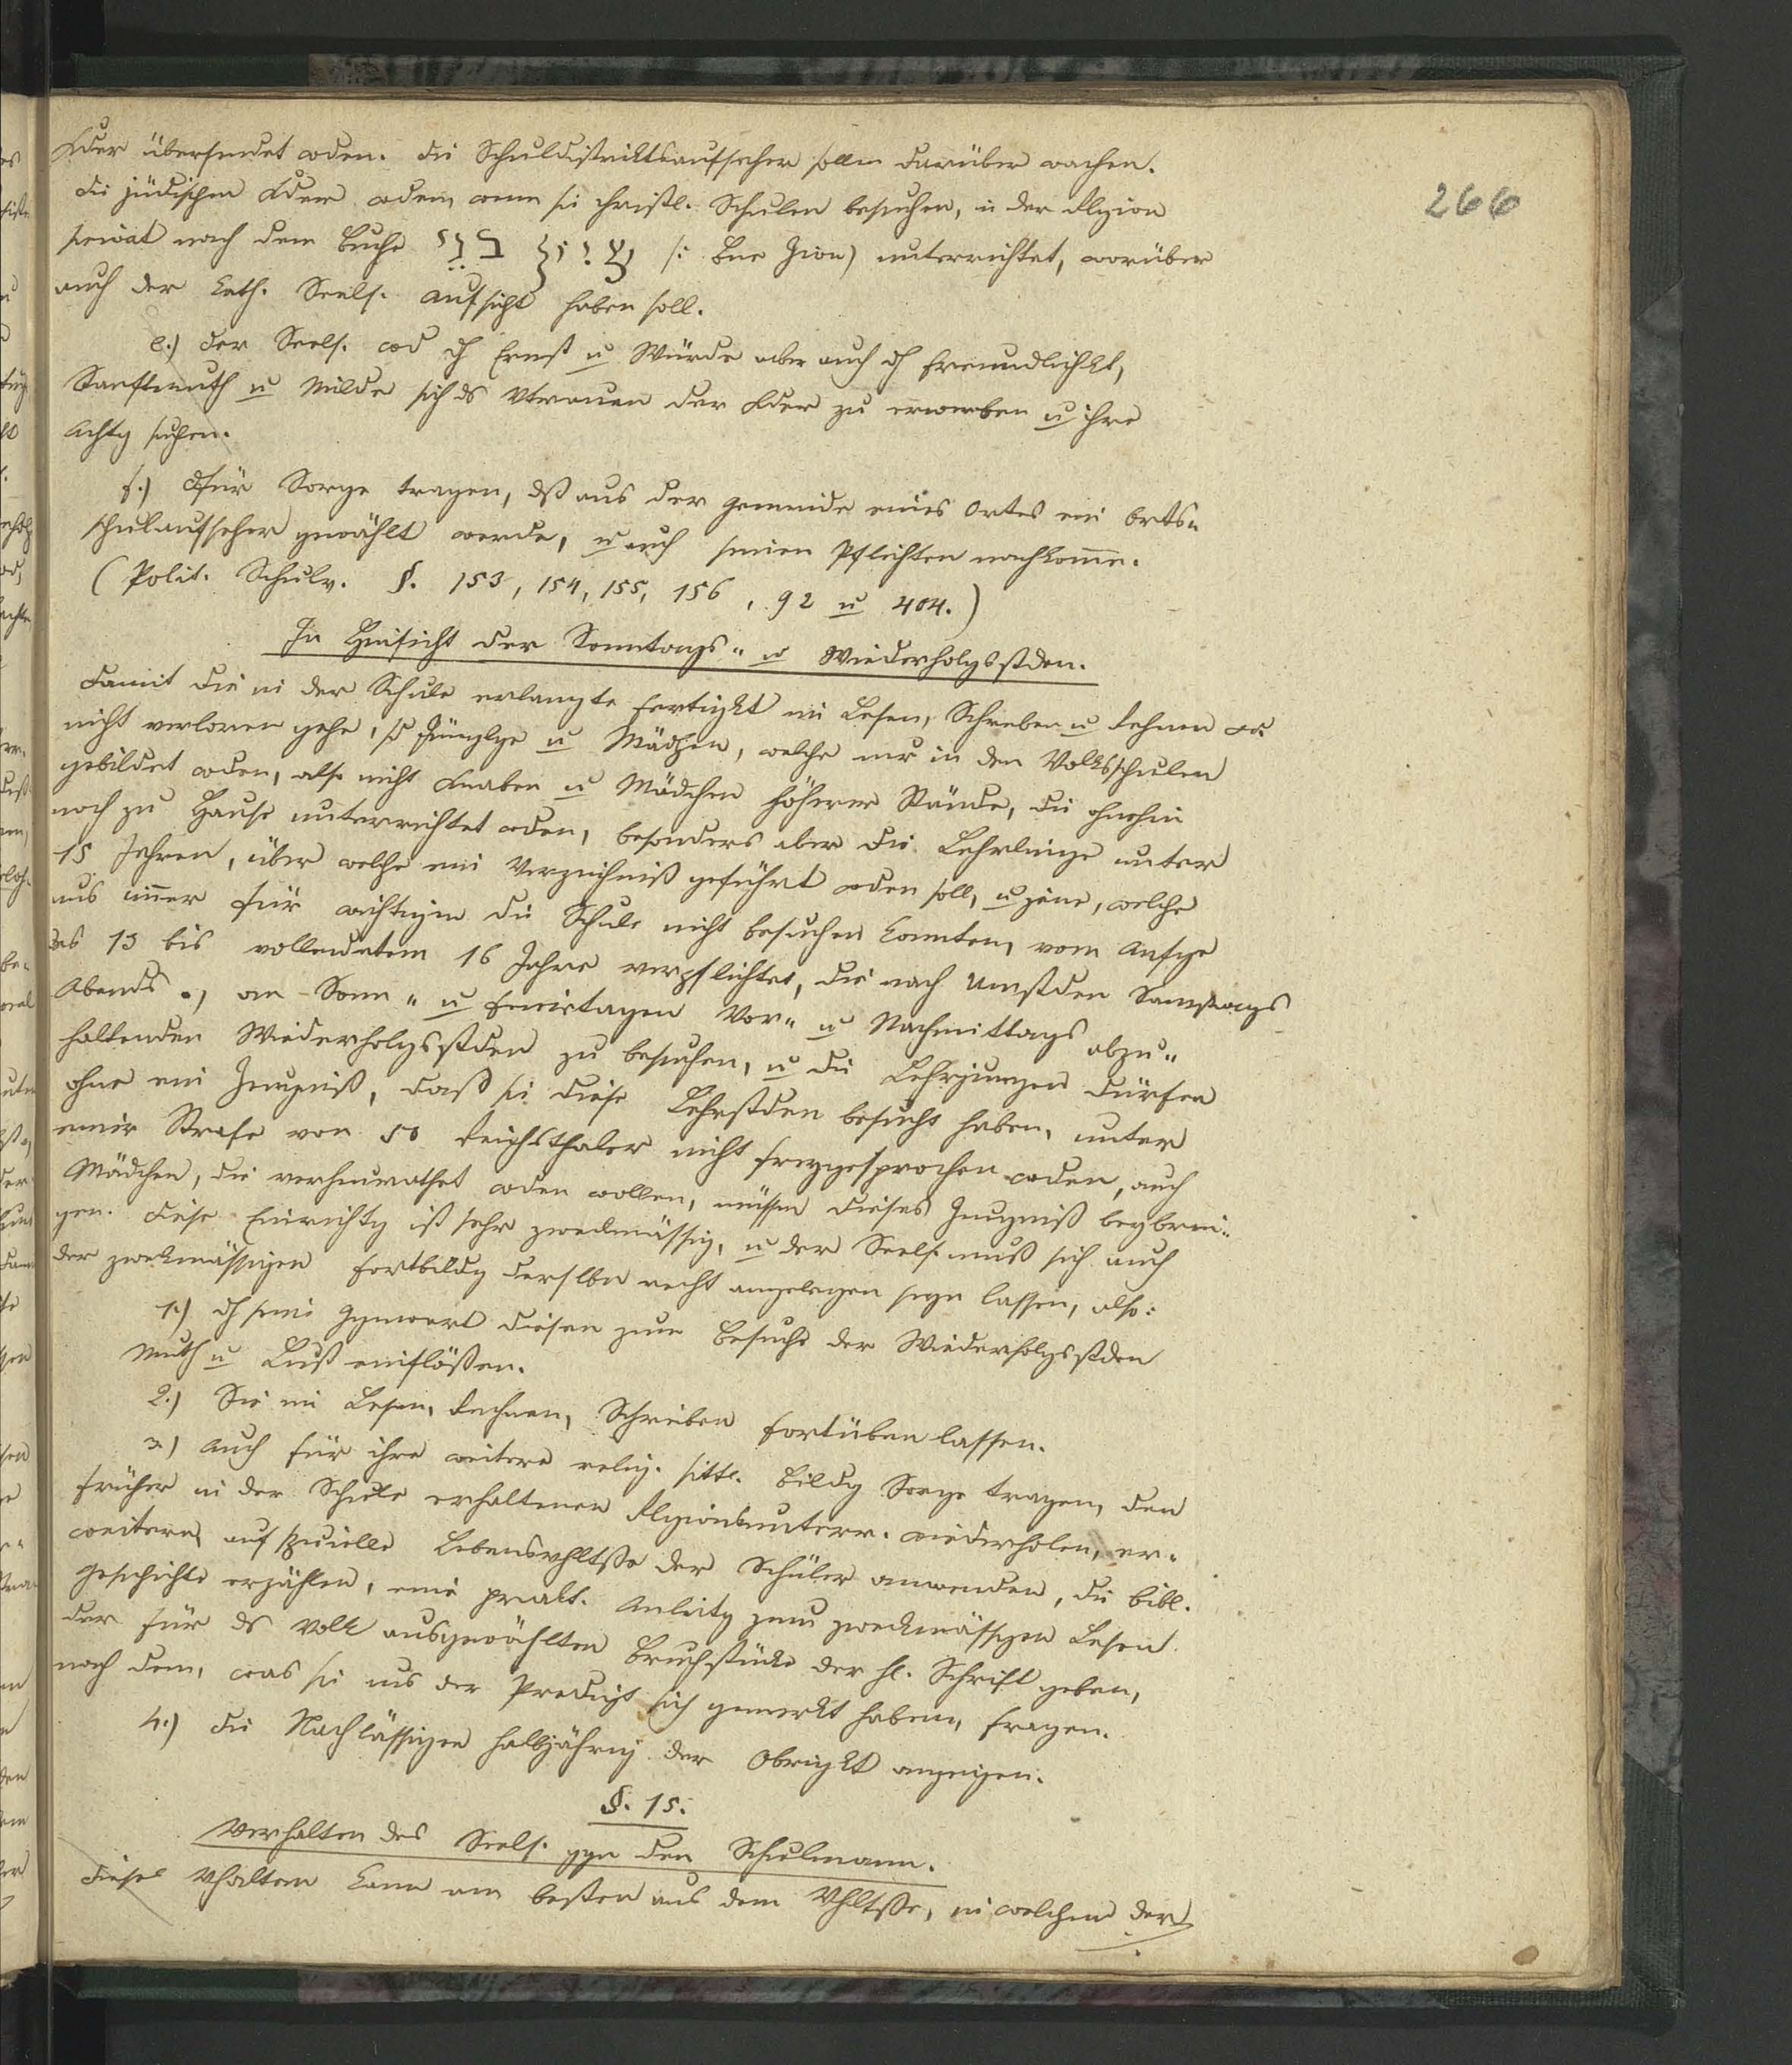 Kder übersendet wden. Die Schuldistriktsaufseher sollen darüber wachen.
266
Die jüdischen Kder wden, wenn sie christl. Schulen besuchen, in der Rlgion
privat nach dem Buche בני ציון /: Bne Zion) unterrichtet, worüber
auch der kath. Seels. Aufsicht haben soll.
e.) Der Seels. wd dch Ernst u Würde aber auch dch Freundlichkt,
Sanftmuth u Milde sich ds Vtrauen der Kder zu erwerben u ihre
Achtg suchen.
f.) Dfür Sorge tragen, dß aus der Gemeinde eines Ortes ein Orts„
schulaufseher gewählt werde, u auch seinen Pflichten nachkome.
(Polit. Schulv. §. 153, 154, 155, 156, 92 u 404.)
In Hinsicht der Sonntags„ u Wiederholgsstden.
Damit die in der Schule erlangte Fertigkt im Lesen, Schreiben u Rechnen
nicht verloren gehe, sd Jünglge u Mädchen, welche nur in den Volksschulen
gebildet wden, also nicht Knaben u Mädchen höherer Stände, die ohnehin
noch zu Hause unterrichtet wden, besonders aber die Lehrlinge unter
15 Jahren, über welche ein Verzeichniß geführt wden soll, u jene, welche
aus immer für wichtigen die Schule nicht besuchen konnten, vom Anfge
des 13 bis vollendetem 16 Jahre verpflichtet, die nach Umstden Samstags
Abends, an Sonn„ u Feiertagen Vor„ u Nachmittags abzu„
haltenden Wiederholgsstden zu besuchen, u die Lehrjungen dürfen
ohne ein Zeugniß, daß sie diese Lehrstden besucht haben, unter
einer Strafe von 50 Reichsthaler nicht freygesprochen wden, auch
Mädchen, die verheurathet wden wollen, müssen dieses Zeugniß beybrin„
gen. Diese Einrichtg ist sehr zweckmässig, u der Seels. muß sich auch
der zwekmässigen Fortbildg derslbn recht angelegen seyn lassen, also:
1.) Dch seine Ggnwart diesen zum Besuche der Wiederholgsstden
Muth u Lust einflößen.
2.) Sie im Lesen, Rechnen, Schreiben fortüben lassen.
3.) Auch für ihre weitere relig. sittl. Bildg Sorge tragen, den
früher in der Schule erhaltenen Rlgionsunterr. wiederholen, er„
weitern, auf spzielle Lebensvhltße der Schüler anwenden, die bibl.
Geschichte erzählen, eine prakt. Anleitg zum zweckmässigen Lesen
der für ds Volk ausgewählten Bruchstücke der hl. Schrift geben,
nach dem, was sie aus der Predigt sich gemerkt haben, fragen.
4.) Die Nachlässigen halbjährig der Obrigkt anzeigen.
§. 15.
Verhalten des Seels. ggn den Schulmann.
Dieses Vhalten kann am besten aus dem Vhltße, in welchem der